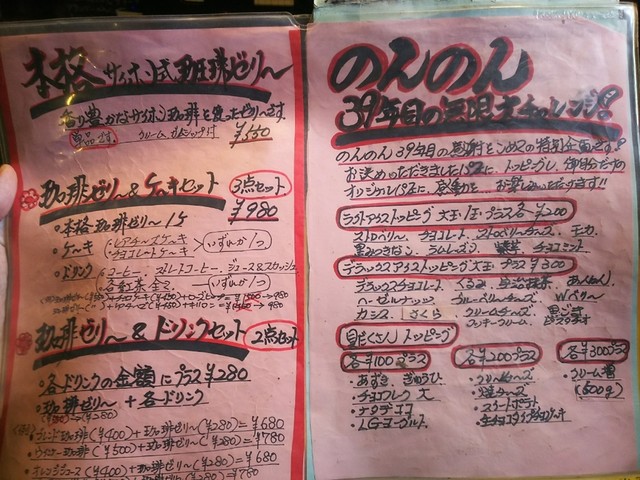 本格サイホン式珈琲ゼリー
香り豊かなサイホン珈琲を使ったゼリーです。
単品です。
¥550
珈琲ゼリー&ケーキセット
3点セット
¥980
・本格珈琲ゼリー1ケ
・ケーキ
レアチーズケーキ
チョコレートケーキ
いずれか1つ
・ドリンク
コーヒー、ストレートコーヒー、ジュース&スカッシュ
いずれか1つ
珈琲ゼリー&ドリンクセット
2点セット
・各ドリンクの金額にプラス¥280
・珈琲ゼリー + 各ドリンク
ブレンド珈琲(¥400)+珈琲ゼリー(¥280)=¥680
ウインナー珈琲(¥500)+珈琲ゼリー(¥280)=¥780
オレンジジュース(¥400)+珈琲ゼリー(¥280)=¥680
のんのん
39年目の無限大チャレンジ!
のんのん39年目の感謝をこめての特別企画です!
お決めいただきましたパフェに、トッピングし、御自分だけの
オリジナルパフェに、感動を、お楽しみいただけます!!
ラクトアイストッピング大王 1ケプラス各¥200
ストロベリー、チョコレート、ストロベリーチーズ、モカ、
黒みつきなこ、ラムレーズン、抹茶、チョコミント
デラックスアイストッピング大王 プラス¥300
デラックスチョコレート、くるみ、宇治抹茶、あんりん
ヘーゼルナッツ、ブルーベリーチーズ、Wベリー
カシス、さくら、クリームチーズ、
クッキークリーム、
目だくさんトッピング
各¥100プラス
・あずき ぎゅうひ
・チョコフレーク大
・ナタデココ
・LGヨーグルト
各¥200プラス
・クリームチーズ
・焼きチーズ
・スイートポテト
・生チョコタイプチョコケーキ
各¥300プラス
・クリーム増
(500g)